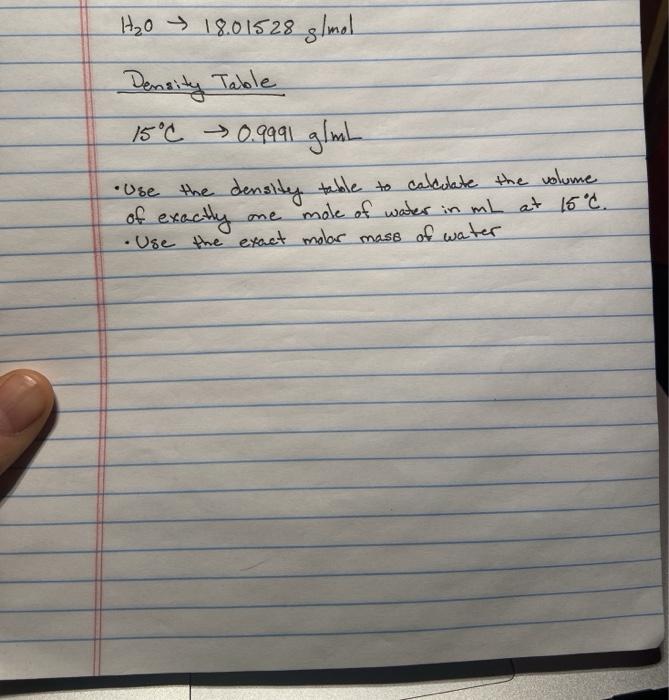 H₂O → 18.01528 g/mol
Density Table
15°C → 0.9991 g/mL
• Use the density table to calculate the volume
of exactly one mole of water in mL at 15°C.
• Use the exact molar mass of water